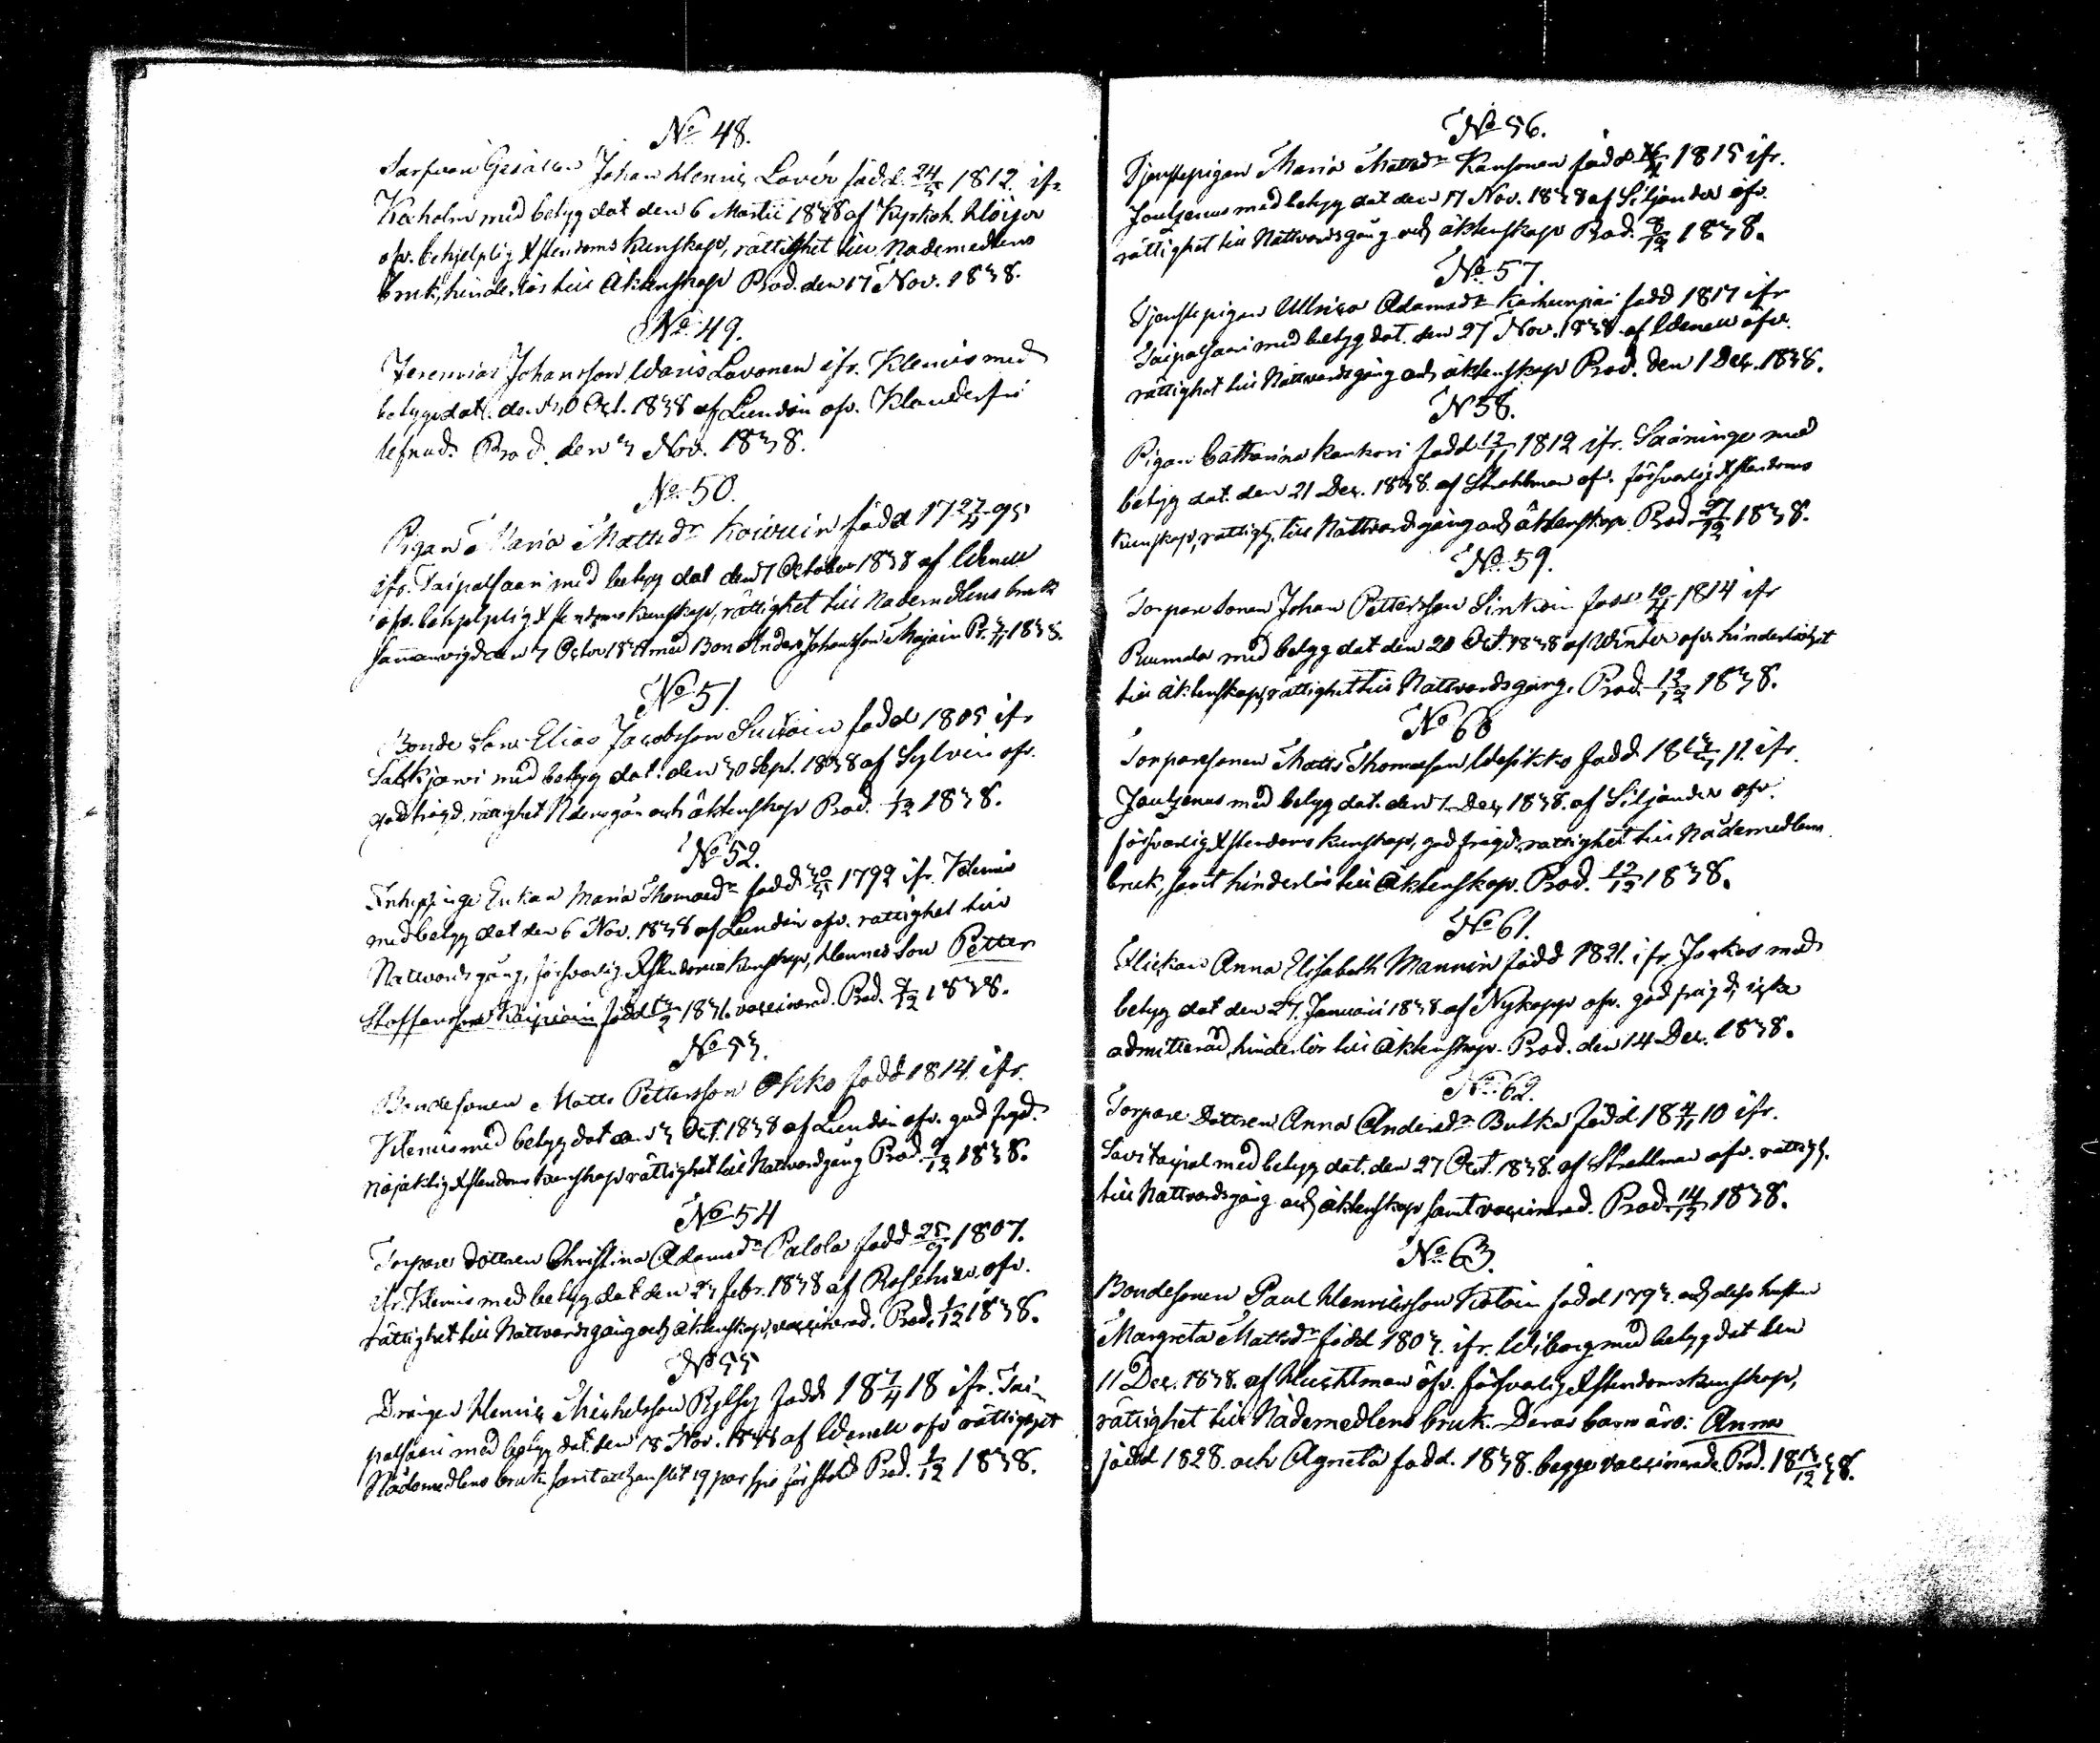 No 48.
Garfvari Gesällen Johan Henric Lovén född 24/5 1812. ifr.
Kexholm med betyg dat den 6 Martii 1838 af Kyrkoh. Höijer
ofv. behjelplig Xstendoms kunskap, rättighet till Nademedlens
bruk, hinderlös till Äktenskap Prod. den 17 Nov. 1838.
No 49.
Jeremias Johansson Lavonen ifr. Klemis med
betyg dat. den 30 Oct. 1838 af Lundén ofv. Klanderfri
lefnad. Prod. den 3 Nov. 1838.
No 50.
Pigan Maria Mattsdr Koivuin född 17 27/4 95
ifr. Taipalsaari med betyg dat den 7 October 1838 af Wenell
ofv. behjelplig Xstendoms kunskap, rättighet till Nademedlens bruk
sammanvigd den 7 Octor 1838 med Bon Anders Johansson Majain Pr. 1838.
No 51.
Bonde Son Elias Jacobsson född 1805 ifr
Säkkjärvi med betyg dat. den 30 Sept. 1838 af Sylvin ofv.
god frägd, rättighet och äktenskap Prod. 1/12 1838.
No 52.
Enkan Maria Thomasdr född 1792 ifr. Klemis
med betyg dat den 6 Nov. 1838 af Lundén ofv. rättighet till
Nattvardsgång, försvarlig Xstendoms kunskap, Hennes Son Petter
Stoffersson född 1831. vaccinerad. Prod. /12 1838.
No 53.
Bondesonen Matts Pettersson född 1814. ifr.
Klemis med betyg dat den 3 Oct. 1838 af Lundén ofv. god frgd.
nöjaktig Xstendoms kunskap rättighet till Nattvardgång Prod. 9/12 1838.
No 54
Torpare dottren Christina Adamsdr Palola född 25/9 1807.
ifr. Klemis med betyg dat den 23 Febr. 1838 af ofv.
rättighet till Nattvardsgång och äktenskap, vaccinerad. Prod. 1/12 1838.
No 55
Drängen Henric Michelsson född 18 7/4 18 ifr. Tai-
palsaari med betyg dat. den 18 Nov. 1838 af Wenell ofv rättighet
Nådemedlens bruk samt 19 par spö för stöld Prod. 1/12 1838.
No 56.
Tjenstepigan Maria Mattsdr Kansonen född 1815 ifr.
Joutzenus med betyg dat den 17 Nov. 1838 af Siljander ofv.
rättighet till Nattvardsgång och äktenskap Prod. 8/12 1838.
No 57.
Tjenstepigan Ulrica Adamsdr Karhunpää född 1817 ifr
Taipalsaari med betyg dat. den 27 Nov. 1838 af Wenell ofv.
rättighet till Nattvardsgång och äktenskap Prod. den 1 Dec. 1838.
N 58.
Pigan Catharina Kankori född 12/11 1812 ifr. Sääminge med
betyg dat. den 21 Dec. 1838. af Strahlman of. försvarlig Xstendoms
kunskap, rättigh. till Nattvardsgång och äktenskap. Prod. 27/12 1838.
No 59.
Torpare Sonen Johan Pettersson Sinkoin född 1814 ifr
Ruumala med betyg dat den 20 Oct. 1838 af Winter ofv. hinderlöshet
till äktenskap, rättighet till Nattvardsgång. Prod. 12/12 1838.
No 60
Torparesonen Matts Thomasson Wesikko född 18 11. ifr.
Joutzenus med betyg dat. den 7 Dec. 1838. af Siljander ofv.
försvarlig Xstendoms kunskap, god frägd, rättighet till Nådemedlens
bruk, samt hinderlös till Äktenskap. Prod. 12/12 1838.
No 61.
Flickan Anna Elisabeth Mannin född 1821. ifr. Jorkas med
betyg dat den 27. Januarii 1838 af Nykopp ofv. god frägd, icke
admitterad, hinderlös till Äktenskap. Prod. den 14 Dec. 1838.
No 62.
Torpare Dottren Anna Andersdr Bulka född 18 4/11 10 ifr.
Savitaipal med betyg dat. den 27 Oct. 1838. af Strallman ofv. rättigh.
till Nattvardsgång och äktenskap samt vaccinerad. Prod. 14/12 1838.
No 63.
Bondesonen Paul Henricsson född 1793. och dess hustru
Margreta Mattsdr född 1803. ifr. Wiborg med betyg dat den
11 Dec. 1838. af ofv. försvarlig Xstendomskunskap,
rättighet till Nådemedlens bruk. Deras barn äro: Anna
född 1828. och Agneta född. 1838. begge vaccinerade. Prod. 18 13/12 38.